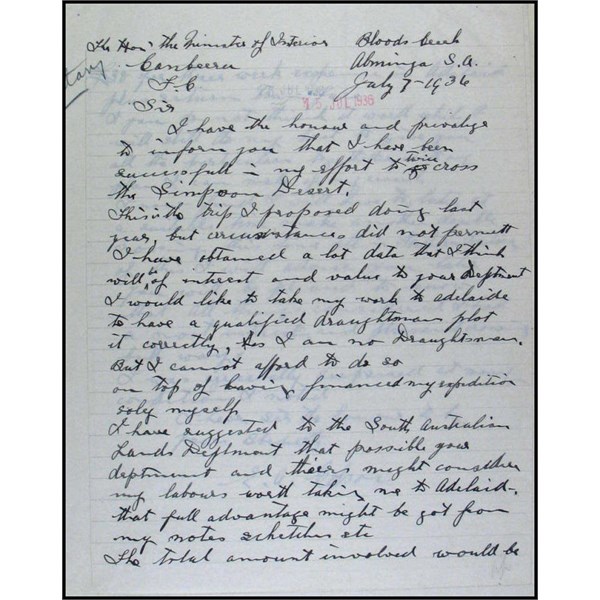 The Hon' The Minister of Interior
Canberra
F.C
Bloods Creek
Abminga S.A.
July 7-1936
15 JUL 1936
Sir
I have the honour and privalige
to inform you that I have been
sucsussfull in my effort to twice cross
the Simpson Desert.
This is the trip I proposed doing last
year, but circumstances did not permett
I have obtained a lot data that I think
will be of interest and value to your Deptment
I would like to take my work to adelaide
to have a qualified draughtsman plot
it correctly, As I am no Draughtsman.
But I cannot afford to do so
on top of having financed my expedition
soly myself
I have suggested to the South Australian
Lands Deptment that possible your
deptment and theirs might consider
my labours worth taking me to Adelaid.
that full advantage might be got from
my notes schetches etc
The total amount involved would be